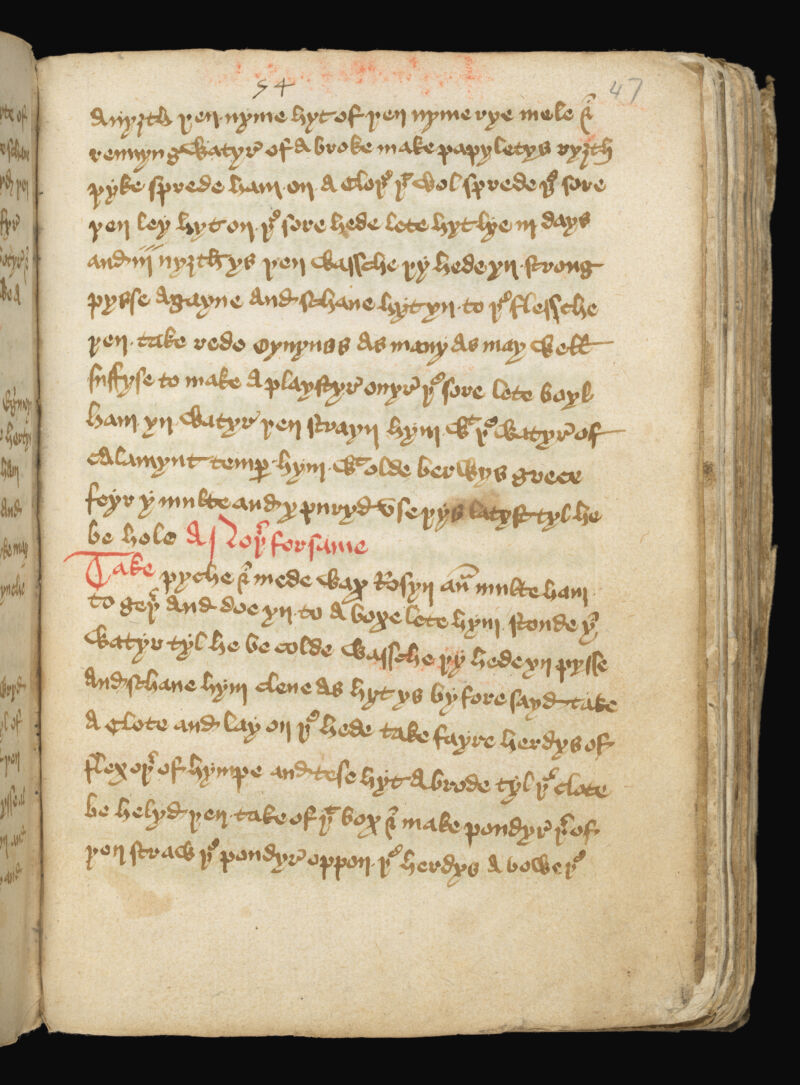 54 47
a nyȝth þen nyme hyt of þen nyme rye mele &
rennyng watyr of a broke make papyletys ryȝth
þyke sprede ham on a cloþ þᵗ wol sprede þᵉ sore
þen ley hyt on þᵉ sore hede lete hyt lye iii days
and iii nyȝthys þen wassche þy hede yn strong
pysse agayne and schaue hyt yn to þᵉ flessche
þen take rede oynyons as many as may well
suffyse to make a playstyr ouyr þᵉ sore lete boyl
ham yn watyr þen strayn hym wᵗ þᵉ watyr of
calamynt temp hym wᵗ olde berwys grece
feyr y multe and y puryd vse þys tyl he
be hole A Noþʳ for same
Take pyche & mede wax Rosyn and multe ham
to geþʳ and doe yn to a boxe lete hym stonde yn
watyr tyl he be colde wassche þy hede yn pysse
and schaue hym clene as hyt ys by fore sayd take
a clote and lay on þᵉ hede take fayre herdys of
flex oþʳ of hympe and tese hyt a brode tyl þᵉ clote
be helyd þen take of þᵗ box & make poudyr þʳ of
þen straw þᵉ poudyr oppon þᵉ herdys a bowe þᵉ